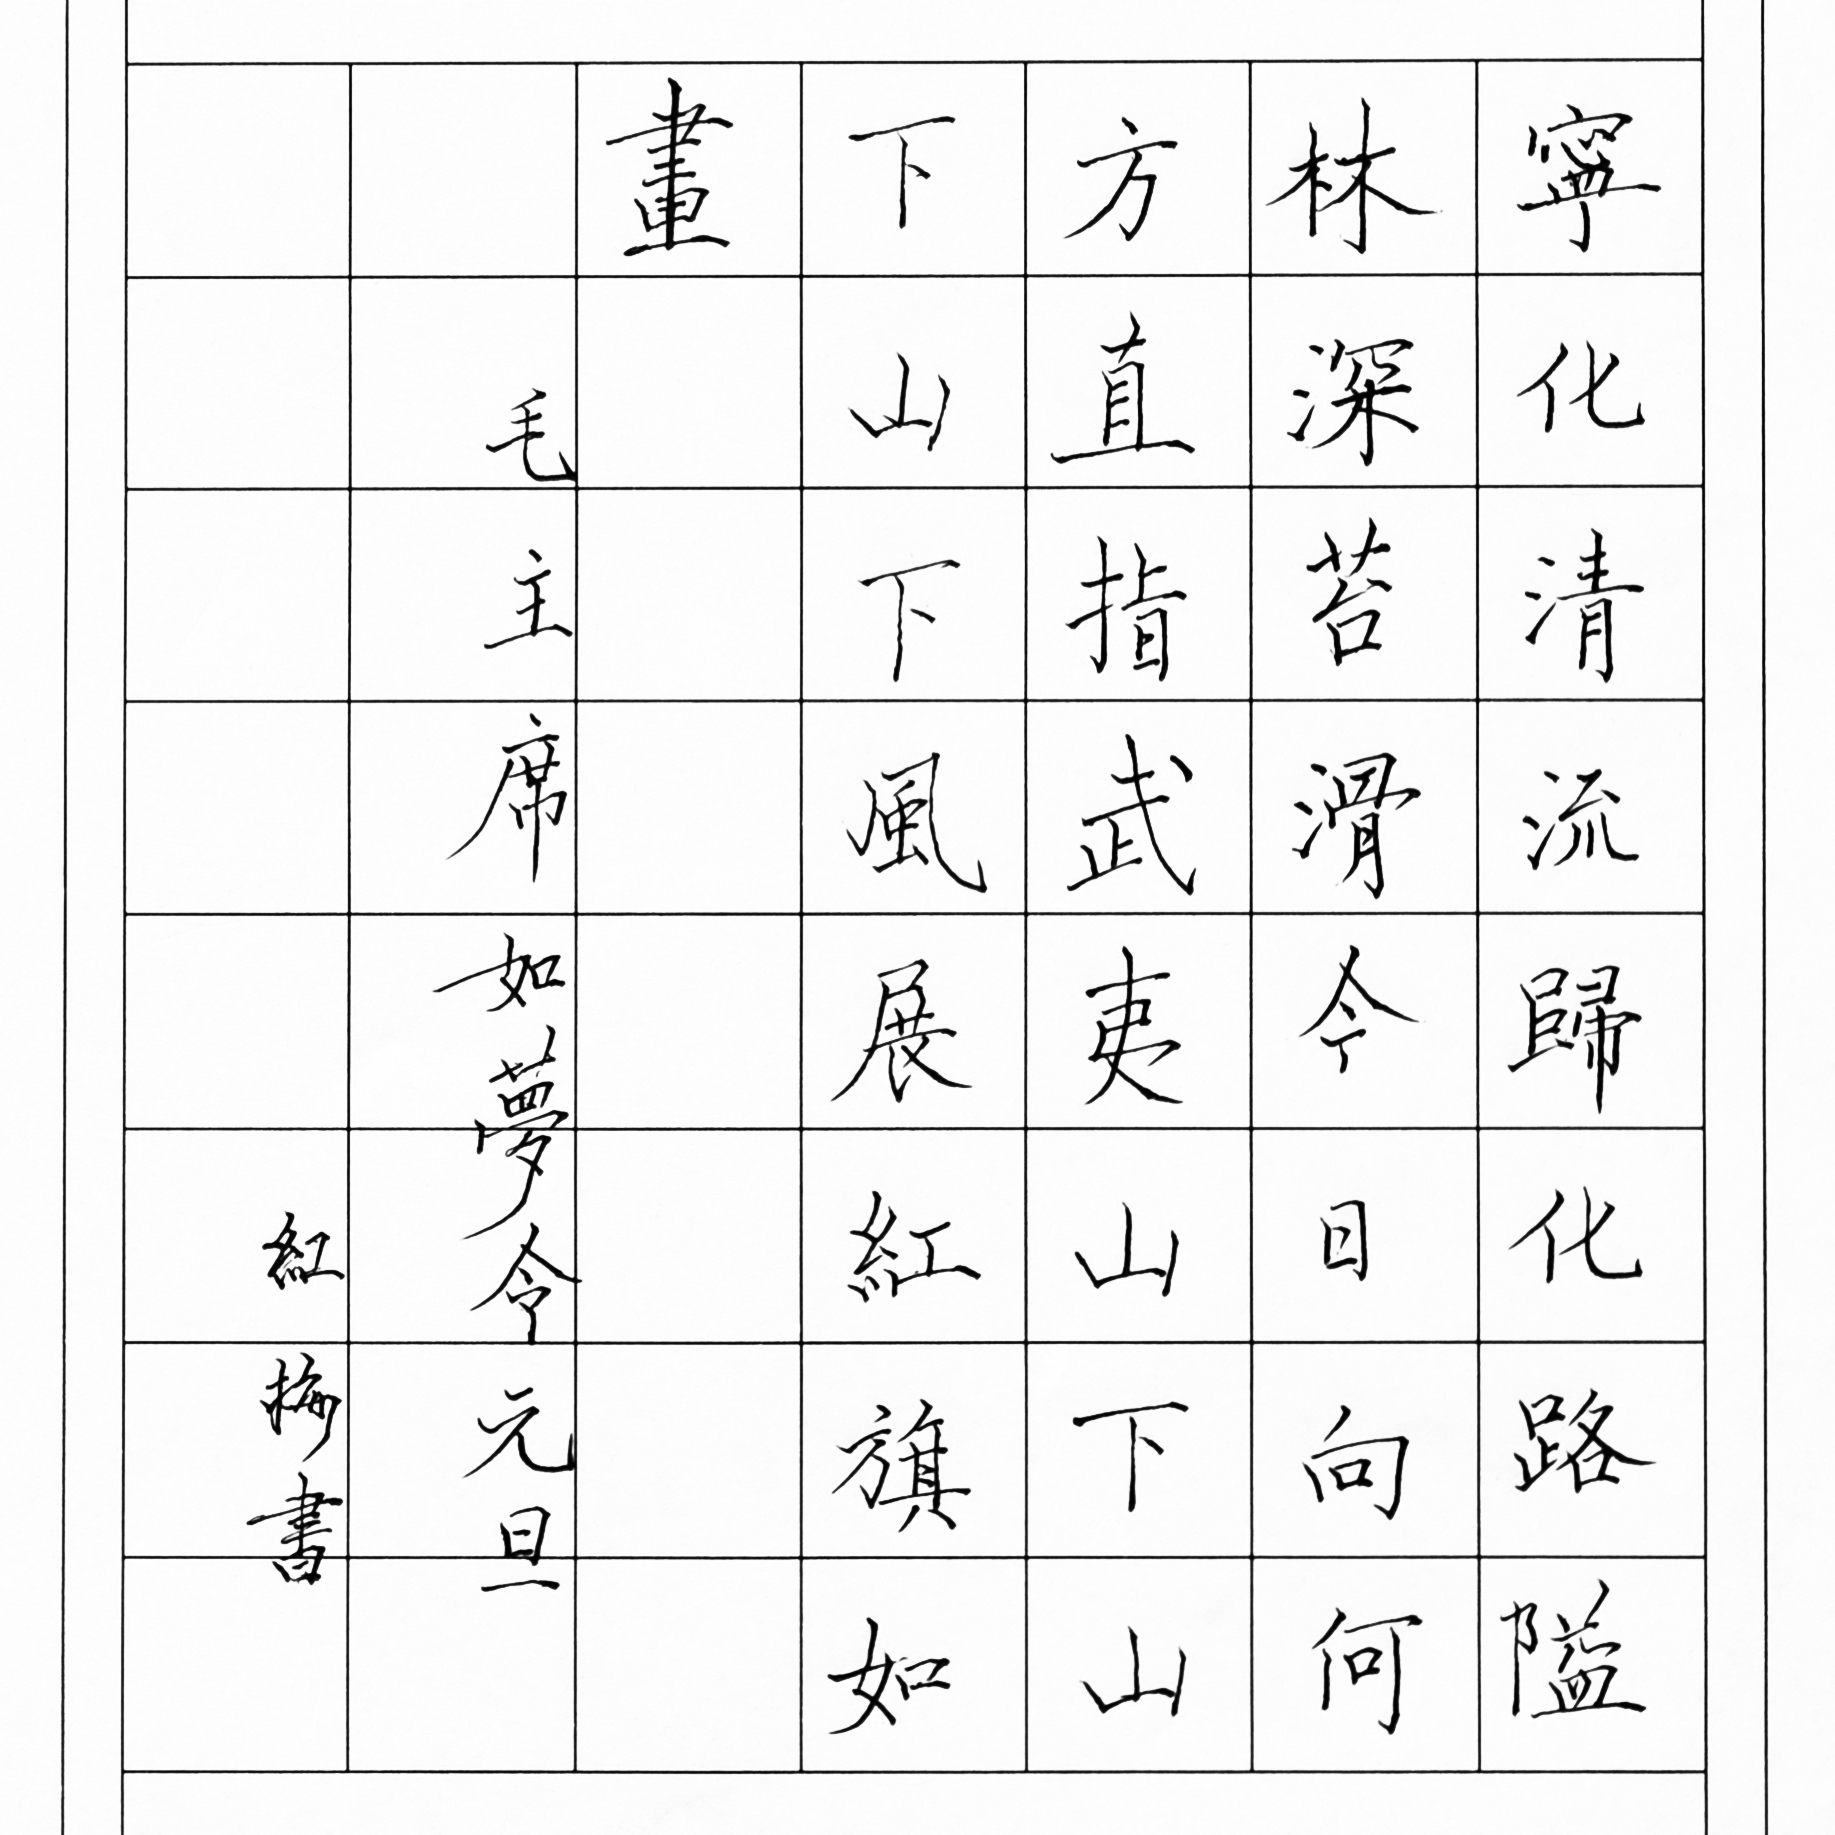 寧化清流歸化路隘
林深苔滑今日向何
方直指武夷山下山
下山下風展紅旗如
畫
毛主席如夢令元旦
紅梅書